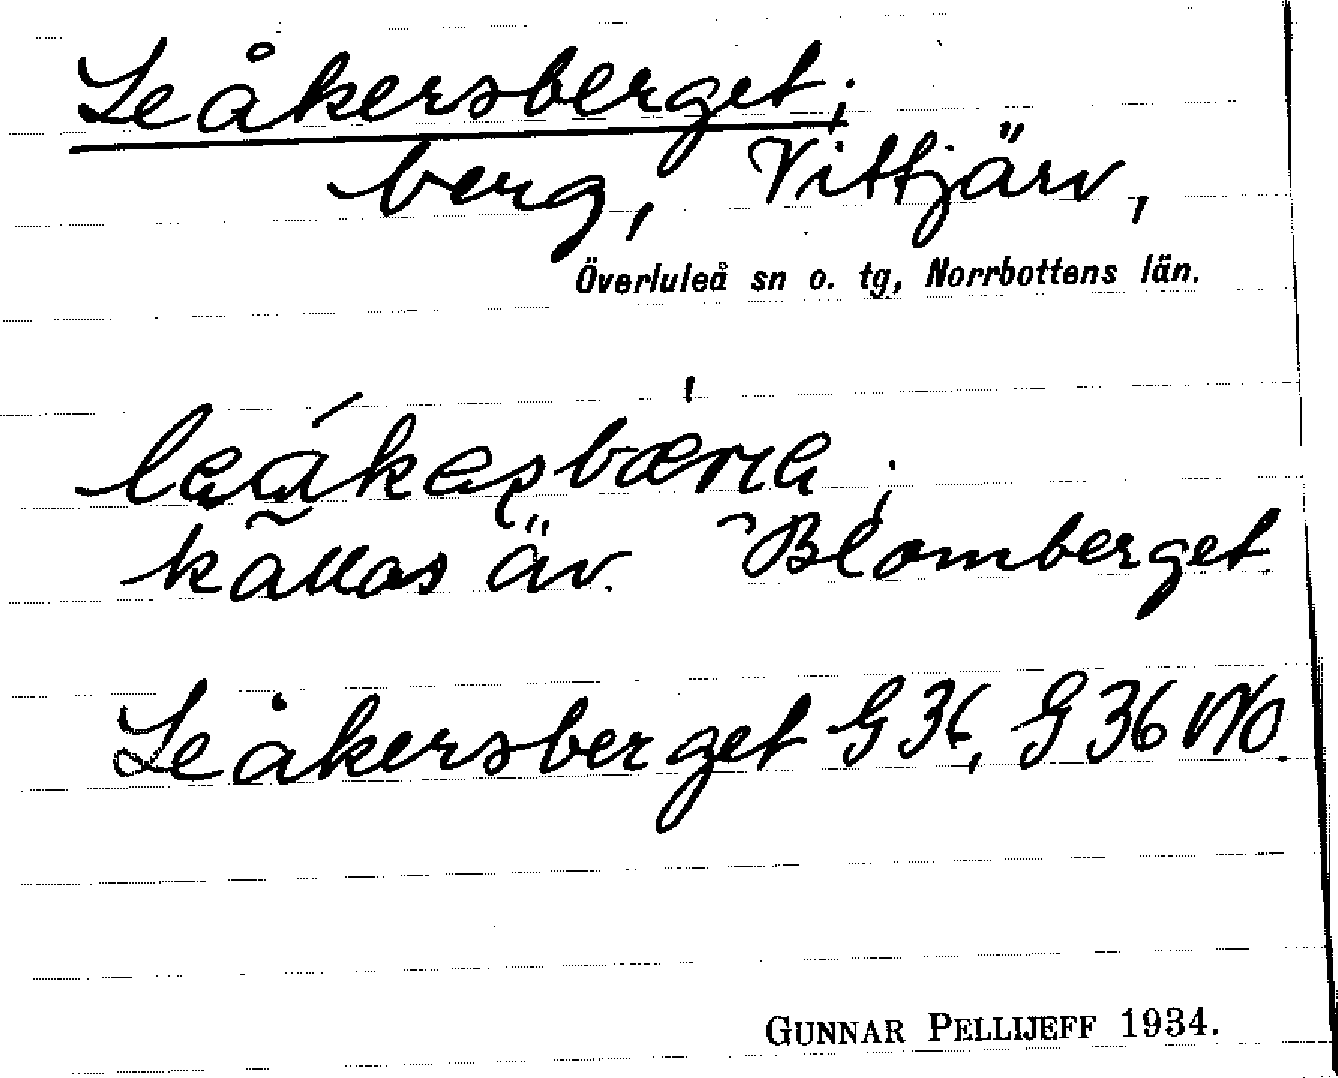 Leåkersberget;
berg, Vittjärv,
Överluleå sn o. tg, Norrbottens län.
kallas äv. Blomberget
Leåkersberget G36, G36 NO.
GUNNAR PELLIJEFF 1934.